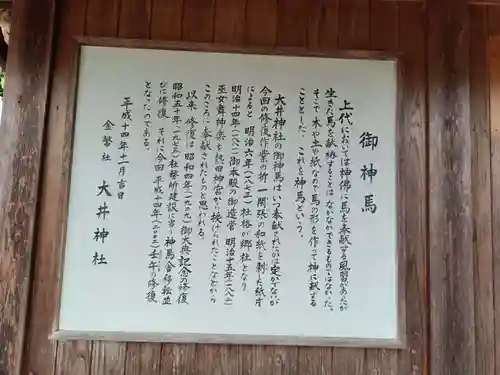 御神馬
上代においては神佛に馬を奉献する風習があったが
生きた馬を献納することは なかなかできるものではなかった。
そこで 木や土や紙なので馬の形を作って神に献する
こととした。これを神馬という。
大井神社の御神馬は いつ奉献されたのは定かでないが
今回の修復作業の折 一閑張の和紙を剥した紙片
によると 明治六年(一八七三)社格が郷社となり
明治十四年(一八八一)御本殿の御造営 明治十五年(一八八二)
巫女舞神楽を熱田神宮から授けられたことなどから
このころに奉献されたものと思われる。
以来 修復は 昭和四年(一九二九)御大典記念の修復
昭和五十年(一九七五)社務所建設に当り神馬舎移転並
びに修復 それに今回 平成十四年(二〇〇二)壬午の修復
となったのである。
平成十四年十一月吉日
金幣社 大井神社